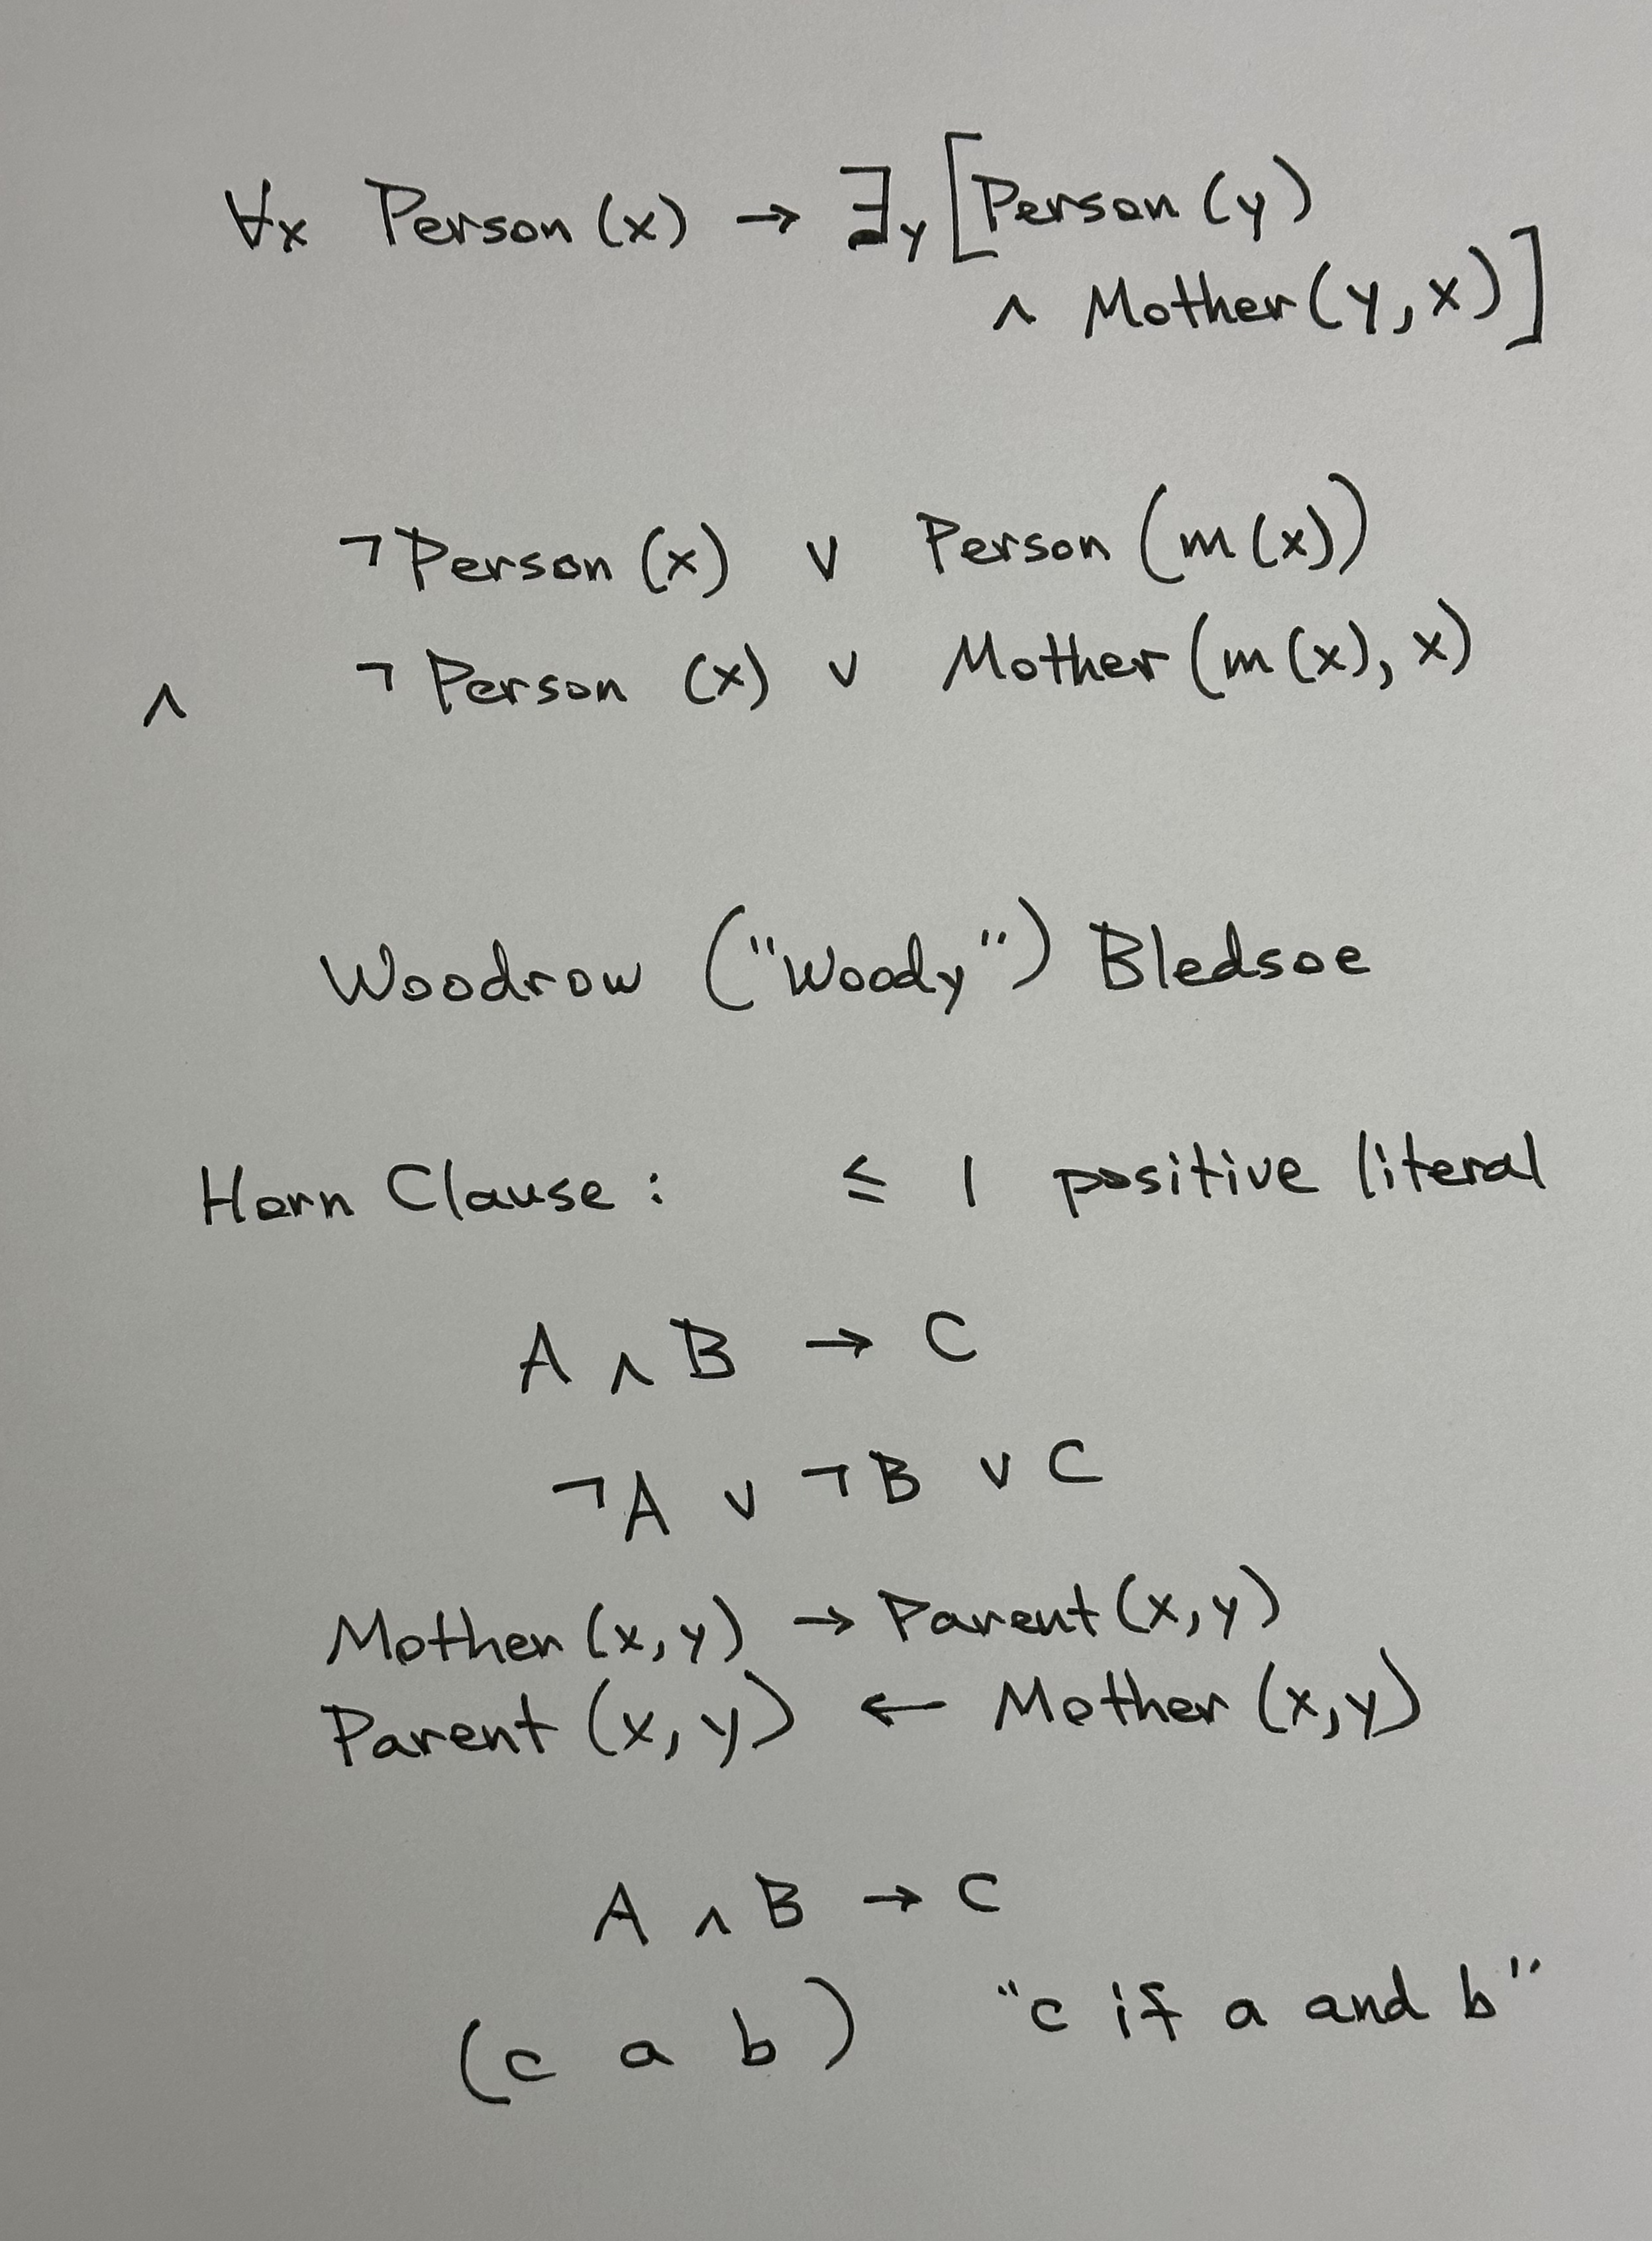 ∀x Person (x) → ∃y [Person (y)
∧ Mother (y, x)]
¬Person (x) ∨ Person (m(x))
∧ ¬Person (x) ∨ Mother (m(x), x)
Woodrow ("Woody") Bledsoe
Horn Clause : ≤ 1 positive literal
A ∧ B → C
¬A ∨ ¬B ∨ C
Mother (x, y) → Parent (x, y)
Parent (x, y) ← Mother (x, y)
A ∧ B → C
(c a b) "c if a and b"